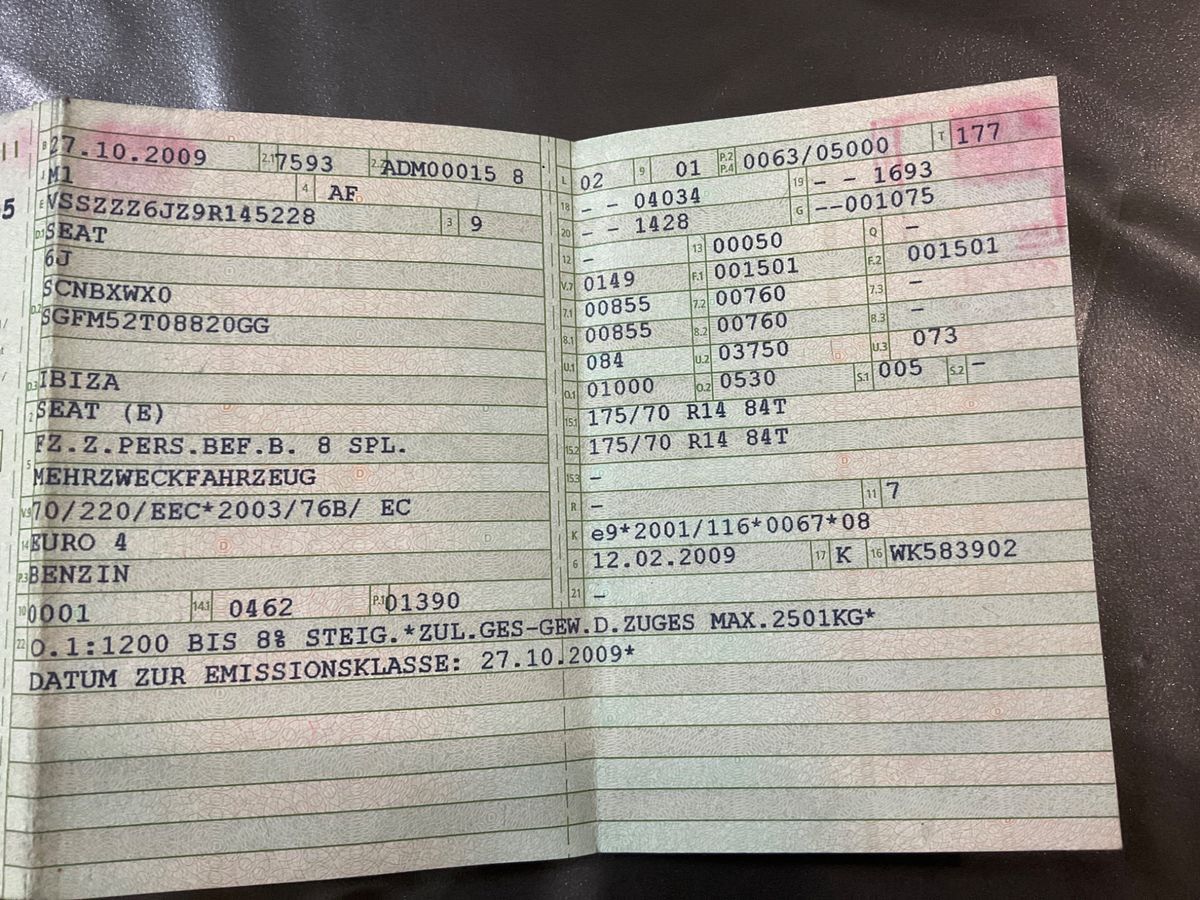 B 27.10.2009 2.1 7593 2.2 ADM00015 8
J M1 4 AF
E VSSZZZ6JZ9R145228 3 9
D.1 SEAT
6J
D.2 SCNBXWX0
SGFM52T08820GG
D.3 IBIZA
2 SEAT (E)
FZ.Z.PERS.BEF.B. 8 SPL.
5 MEHRZWECKFAHRZEUG
V.9 70/220/EEC*2003/76B/ EC
14 EURO 4
P.3 BENZIN
10 0001 14.1 0462 P.1 01390
L 02 9 01 P.2 P.4 0063/05000 T 177
18 - - 04034 19 - - 1693
20 - - 1428 G --001075
12 - 13 00050 Q -
V.7 0149 F.1 001501 F.2 001501
7.1 00855 7.2 00760 7.3 -
8.1 00855 8.2 00760 8.3 -
U.1 084 U.2 03750 U.3 073
O.1 01000 O.2 0530 S.1 005 S.2 -
15.1 175/70 R14 84T
15.2 175/70 R14 84T
15.3 -
R - 11 7
K e9*2001/116*0067*08
6 12.02.2009 17 K 16 WK583902
21 -
22 O.1:1200 BIS 8% STEIG.*ZUL.GES-GEW.D.ZUGES MAX.2501KG*
DATUM ZUR EMISSIONSKLASSE: 27.10.2009*